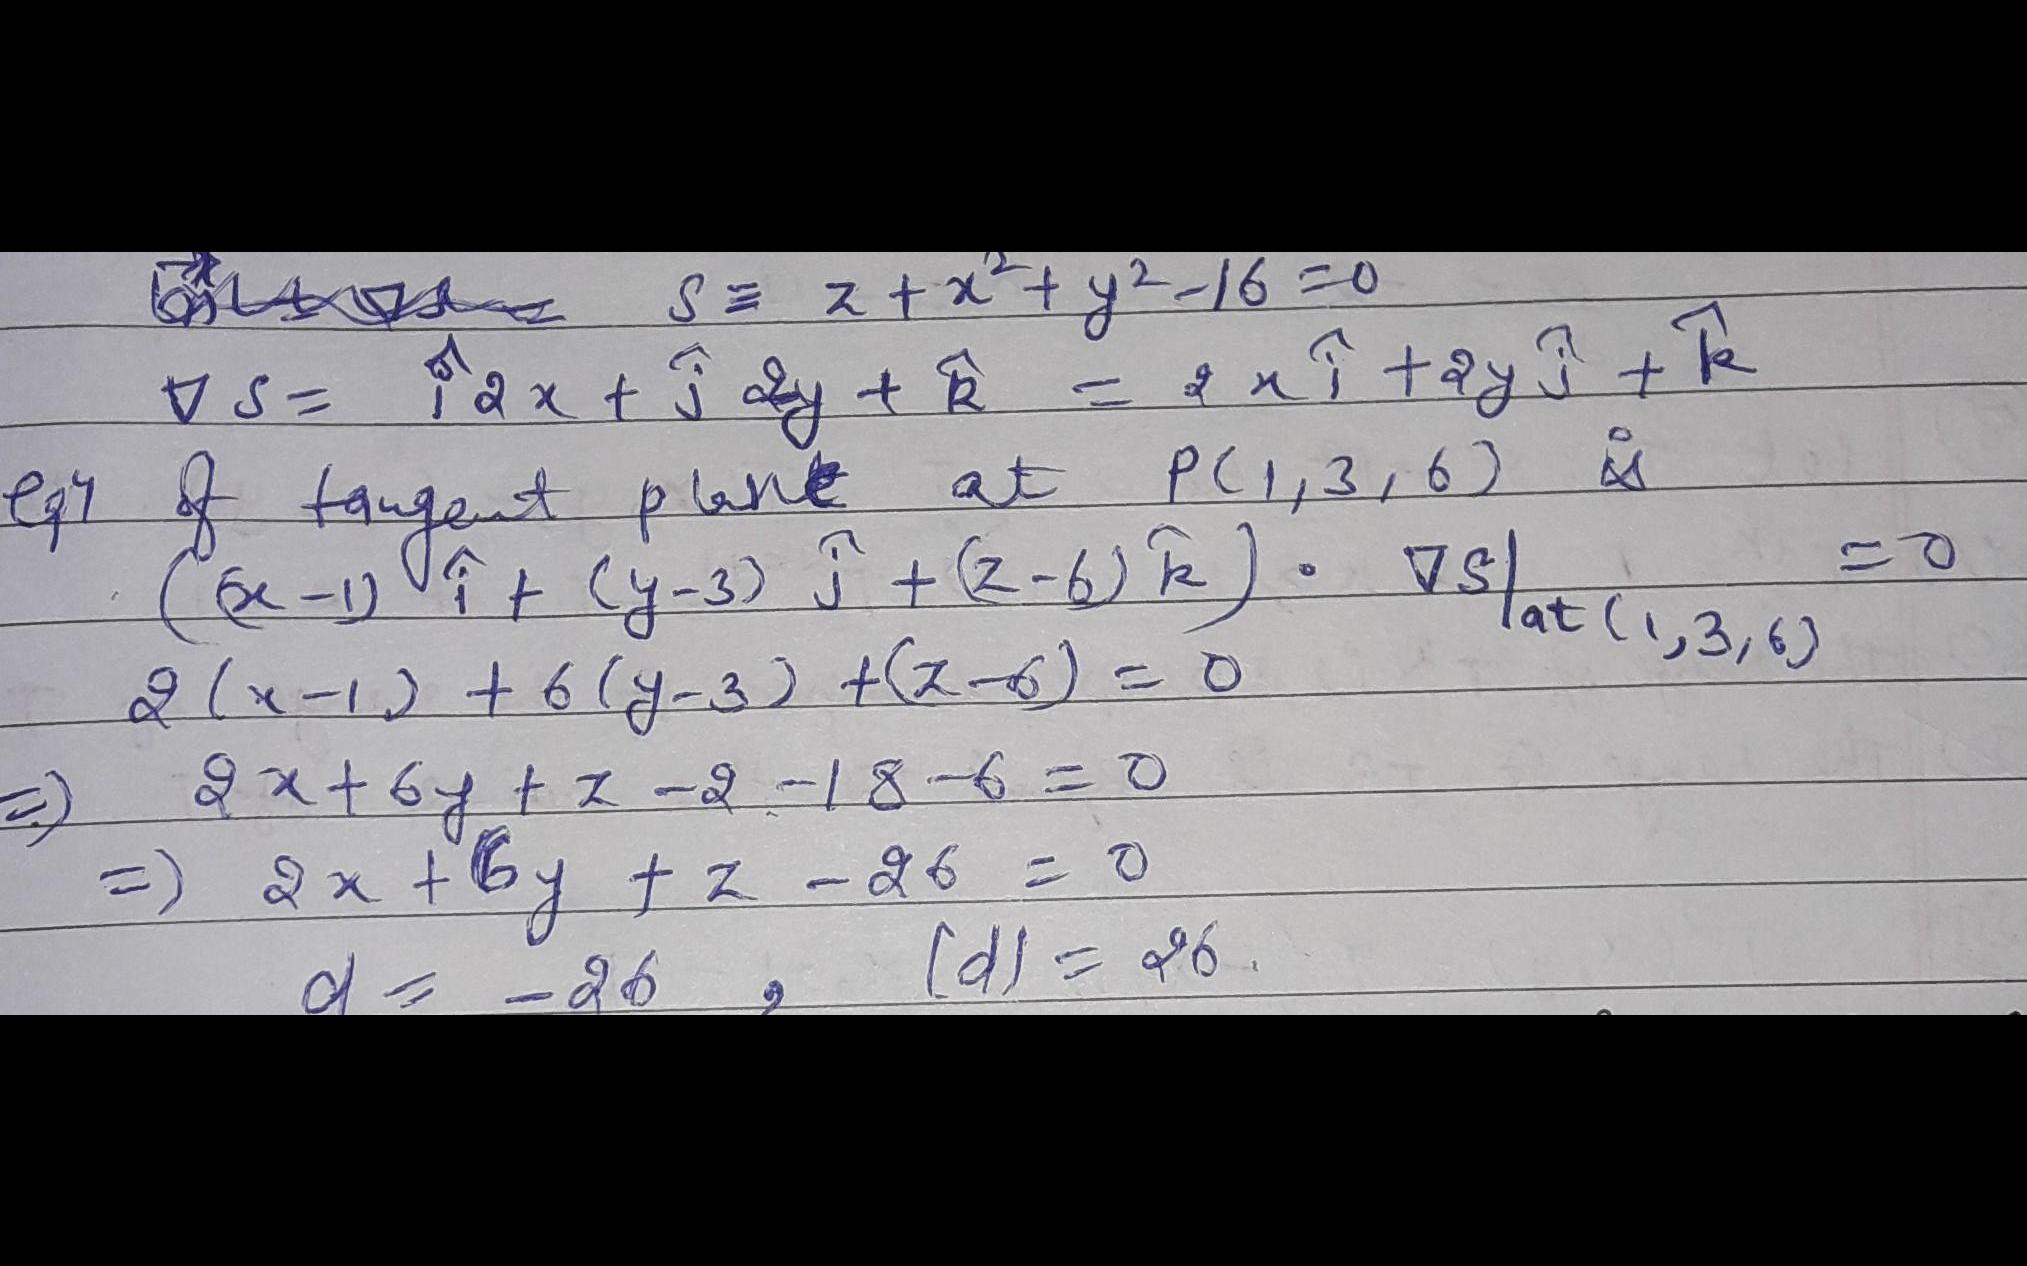 S ≡ z + x² + y² - 16 = 0
∇S = î 2x + ĵ 2y + k̂ = 2x î + 2y ĵ + k̂
eqn of tangent plane at P(1,3,6) is
((x-1) î + (y-3) ĵ + (z-6) k̂) · ∇S|at (1,3,6) = 0
2(x-1) + 6(y-3) + (z-6) = 0
=) 2x + 6y + z - 2 - 18 - 6 = 0
=) 2x + 6y + z - 26 = 0
d = -26 , |d| = 26.